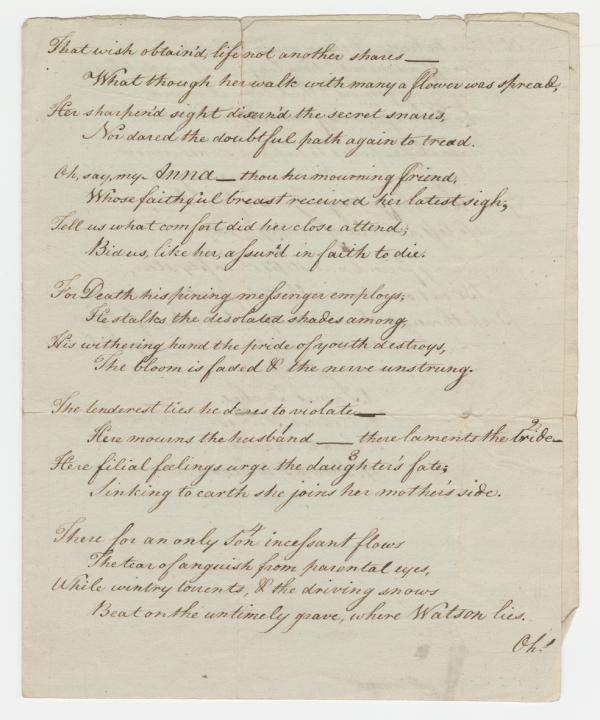 That wish obtain'd, life not another shares —
What though her walk with many a flower was spread,
Her sharpen'd sight discern'd the secret snares,
Nor dared the doubtful path again to tread.
Oh, say, my Anna — thou her mourning friend,
Whose faithful breast received her latest sigh;
Tell us what comfort did her close attend;
Bid us, like her, assur'd in faith to die.
For Death his pining messenger employs;
He stalks the desolated shades among,
His withering hand the pride of youth destroys,
The bloom is faded & the nerve unstrung.
The tenderest ties he dares to violate —
Here mourns the husband 1 — there laments the bride 2 —
Here filial feelings urge the daughter's 3 fate;
Sinking to earth she joins her mother's side.
There for an only Son 4 incessant flows
The tear of anguish from parental eyes,
While wintry torrents, & the driving snows
Beat on the untimely grave, where Watson lies.
Oh!